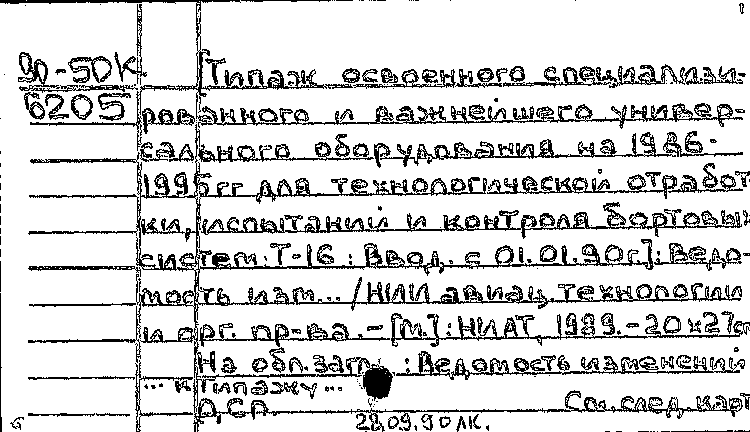 90-50К [Типаж освоенного специализи-
6205 рованного и важнейшего универ-
сального оборудования на 1986-
1995гг для технологической отработ
ки, испытаний и контроля бортовых
систем: Т-16 : Ввод. с 01.01.90г.]: Ведо-
мость изм... /НИИ авиац. технологии
и орг. пр-ва. - [М.]: НИАТ, 1989. - 20x27см
На обл. загл. : Ведомость изменений
... к Типажу ...
Д.С.П. См. след. карт
28.09.90 ЛК.